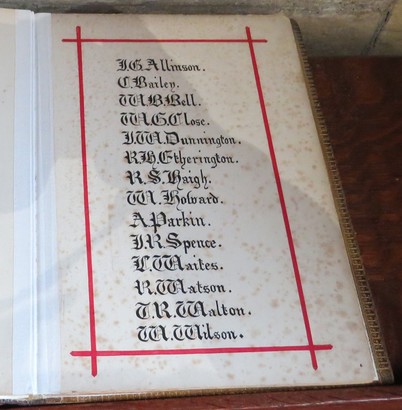 J.G.Allinson.
C.Bailey.
W.B.Bell.
W.G.Close.
J.W.Dunnington.
R.H.Etherington.
R.S.Haigh.
W.Howard.
A.Parkin.
J.R.Spence.
L.Waites.
R.Watson.
T.R.Walton.
W.Wilson.